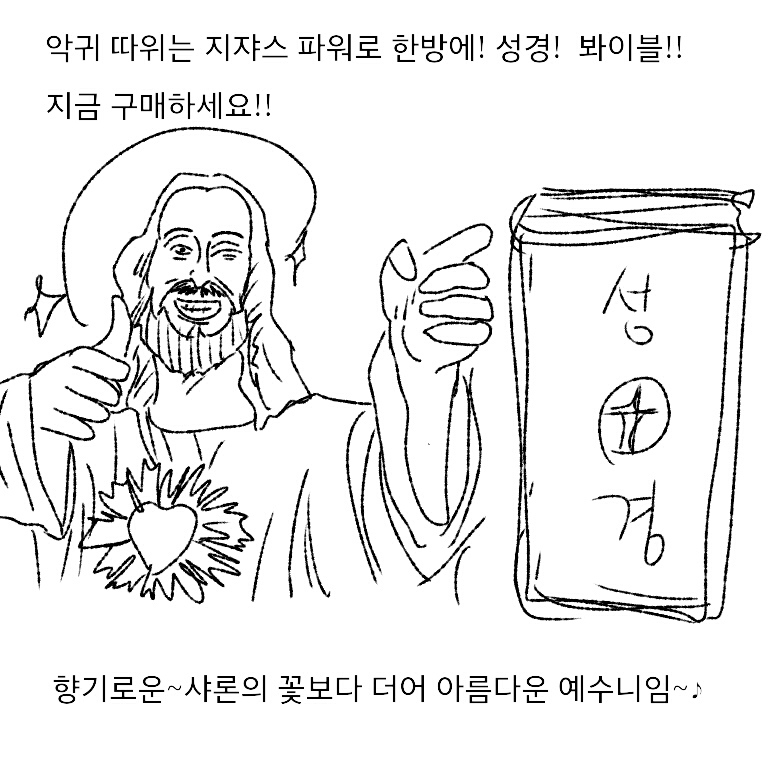 악귀 따위는 지쟈스 파워로 한방에! 성경! 봐이블!!
지금 구매하세요!!
성
경
향기로운~샤론의 꽃보다 더어 아름다운 예수니임~♪